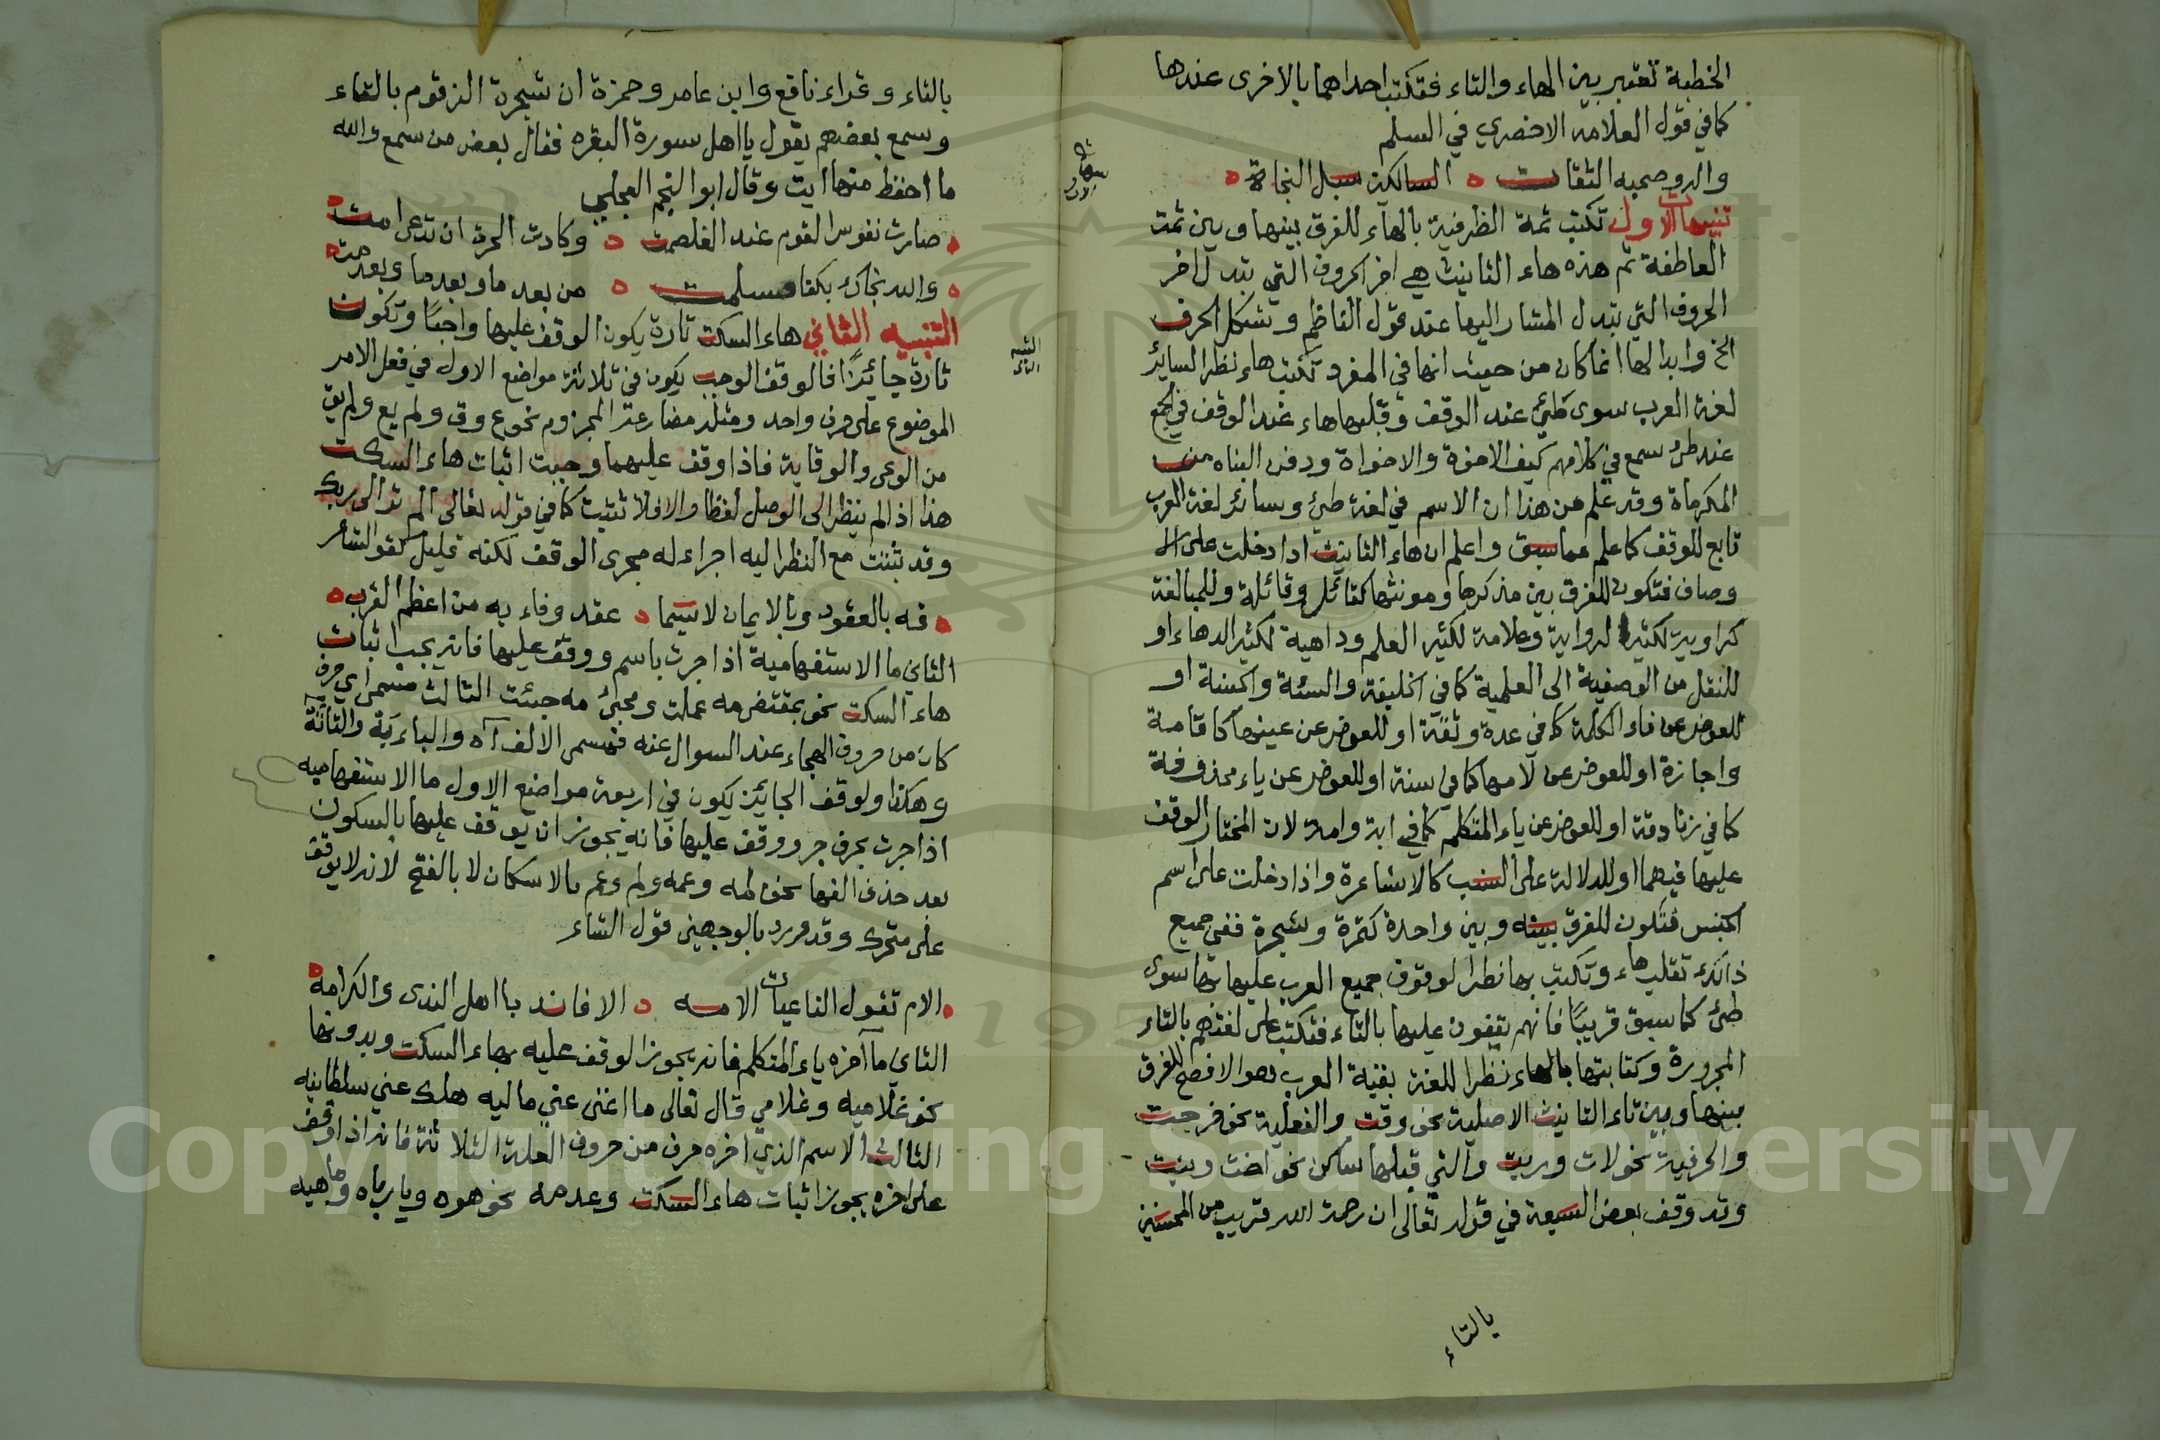 الخطبة تعتبر بين الهاء والتاء فتكتب احداهما بالاخرى عندها
كما في قول العلامه الاخضري في السلم
واله وصحبه الثقات السالكين سبل النجاة
تنبيهات الاول تكتب ثمة الظرفية بالهاء للفرق بينها وبين ثمت
العاطفة ثم هذه هاء التانيث هي اخر الحروف التي تبدل اخر
الحروف التي تبدل المشار اليها عند قول الناظم وتشكل الحرف
الخ وابدالها انما كان من حيث انها في المفرد تكتب هاء نظرا لساير
لغة العرب سوى طيئ عند الوقف وقلبها هاء عند الوقف في الجمع
عند طئ سمع في كلامهم كيف الاخوة والاخواة ودفن البناه من
المكرماة وقد علم من هذا ان الاسم في لغة طئ وسائر لغة العرب
تابع للوقف كما علم مما سبق واعلم ان هاء التانيث اذا دخلت على الا
وصاف فتكون للفرق بين مذكرها ومونثها كقائل وقائلة وللمبالغة
كراوية لكثير الرواية وعلامة لكثير العلم وداهية لكثير الدهاء او
للنقل من الوصفية الى العلمية كما في الخليفة والسنة والحسنة او
للعوض عن فاء الكلمة كما في عدة وثقة او للعوض عن عينها كاقامة
واجازة او للعوض عن لامها كما في سنة او للعوض عن ياء محذوفة
كما في زنادقة او للعوض عن ياء المتكلم كما في ابة وامة لان المختار الوقف
عليها فيهما او للدلالة على النسب كالاشاعرة واذا دخلت على اسم
الجنس فتكون للفرق بينه وبين واحدة كتمرة وشجرة ففي جميع
ذالك تقلب هاء وتكتب بها نظرا لوقوف جميع العرب عليها بها سوى
طئ كما سبق قريبا فانهم يقفون عليها بالتاء فتكتب على لغتهم بالتاء
المجرورة وكتابتها بالهاء نظرا للغة بقية العرب هو الافصح للفرق
بينها وبين تاء التانيث الاصلية نحو وقت والفعلية نحو فرحت
والحرفية نحو لات وربت والتي قبلها ساكن نحو اخت وبنت
وقد وقف بعض السبعة في قوله تعالى ان رحمة الله قريب من المحسنين
بالتاء
بالتاء وقراء نافع وابن عامر وحمزة ان شجرة الزقوم بالتاء
وسمع بعضهم يقول يااهل سورة البقره فقال بعض من سمع والله
ما احفظ منها ايت وقال ابو النجم العجلي
صارت نفوس القوم عند الغلصمت وكادت الحرة ان تدعى امت
والله نجاك بكفا مسلمت من بعد ما وبعد ما وبعدمت
التنبيه الثاني هاء السكت تارة يكون الوقف عليها واجبا وتكون
التنبيه الثاني
تارة جائزا فالوقف الوجب يكون في ثلاثة مواضع الاول في فعل الامر
الموضوع على حرف واحد ومثله مضارعه المجزوم نحو ع وق ولم يع ولم يق
من الوعى والوقاية فاذا وقف عليهما وجبت اثبات هاء السكت
هذا اذ الم ينظر الى الوصل لفظا والا فلا تثبت كما في قوله تعالى الم تر الى ربك
وقد تثبت مع النظر اليه اجراء له مجرى الوقف لكنه قليل كقو الشاعر
فه بالعقود وبالايمان لاسيما عقد وفاء به من اعظم القرب
الثاني ما الاستفهامية اذا جرت باسم ووقف عليها فانه يجب اثبات
هاء السكت نحو بمقتض مه عملت ومجئ مه جيئت الثالث مسمى اي حرف
كان من حروف الهجاء عند السوال عنه فمسمى الالف اه والباء به والتاء ته
وهكذا ولوقف الجايئز يكون في اربعة مواضع الاول ما الاستفهاميه
اذا جرت بحرف جر ووقف عليها فانه يجوز ان يوقف عليها بالسكون
بعد حذف الفها نحو لمه وعمه ولم وعم بالاسكان لا بالفتح لانه لا يوقف
على متحرك وقد ورد بالوجهين قول الشاء
الام تقول الناعيات الامه الا فاند بااهل الندى والكرامه
الثاني ما آخره ياء المتكلم فانه يجوز الوقف عليه بهاء السكت وبدونها
نحو غلاميه وغلامي قال تعالى ما اغنى عني ماليه هلك عني سلطانيه
الثالث الاسم الذي اخره حرف من حروف العلة الثلاثة فانه اذا وقف
على اخره يجوز اثبات هاء السكت وعدمه نحو هوه ويا رباه وماهيه